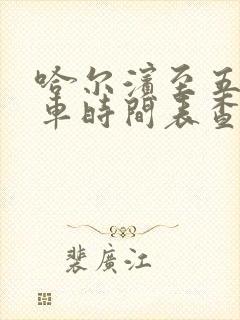 哈尔濱至五
車時間表查
裴廣江